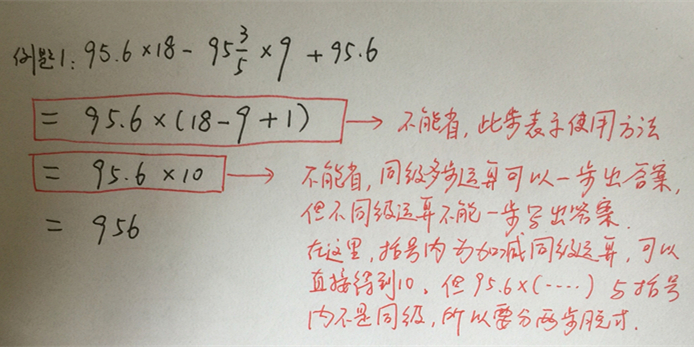 例题1: 95.6×18-95\frac{3}{5}×9+95.6
= 95.6×(18-9+1) → 不能省,此步表示使用方法
= 95.6×10 → 不能省,同级多步运算可以一步出答案,
= 956
但不同级运算不能一步写出答案.
在这里,括号内为加减同级运算,可以
直接得到10、但95.6×(····)与括号
内不是同级,所以要分两步脱式.